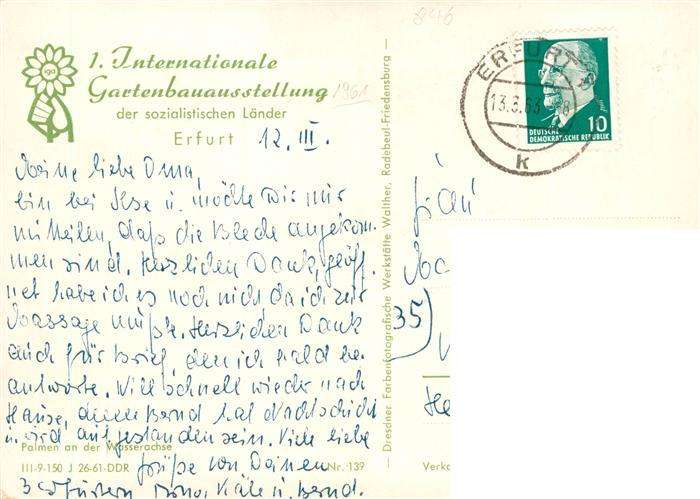 846
iga
1. Internationale
Gartenbauausstellung
1961
der sozialistischen Länder
Erfurt 12. III.
Meine liebe Oma,
bin bei Ilse u. möchte Dir nur
mitteilen, daß die Bleche angekom-
men sind. Herzlichen Dank, geöff-
net habe ich es noch nicht da ich zur
Massage mußte. Herzlichen Dank
auch für Brief, den ich bald be-
antworte. Will schnell wieder nach
Hause, denn Bernd hat Nachtschicht
u. wird aufgestanden sein. Viele liebe
Grüße von Deinen
3 Erfurtern Käte u. Bernd.
Palmen an der Wasserachse
III-9-150 J 26-61-DDR
Nr. 139
Dresdner Farbenfotografische Werkstätte Walther, Radebeul-Friedensburg
ERFURT
13.3.63
k
DEUTSCHE
DEMOKRATISCHE REPUBLIK
10
Frau
35)
He
Verka